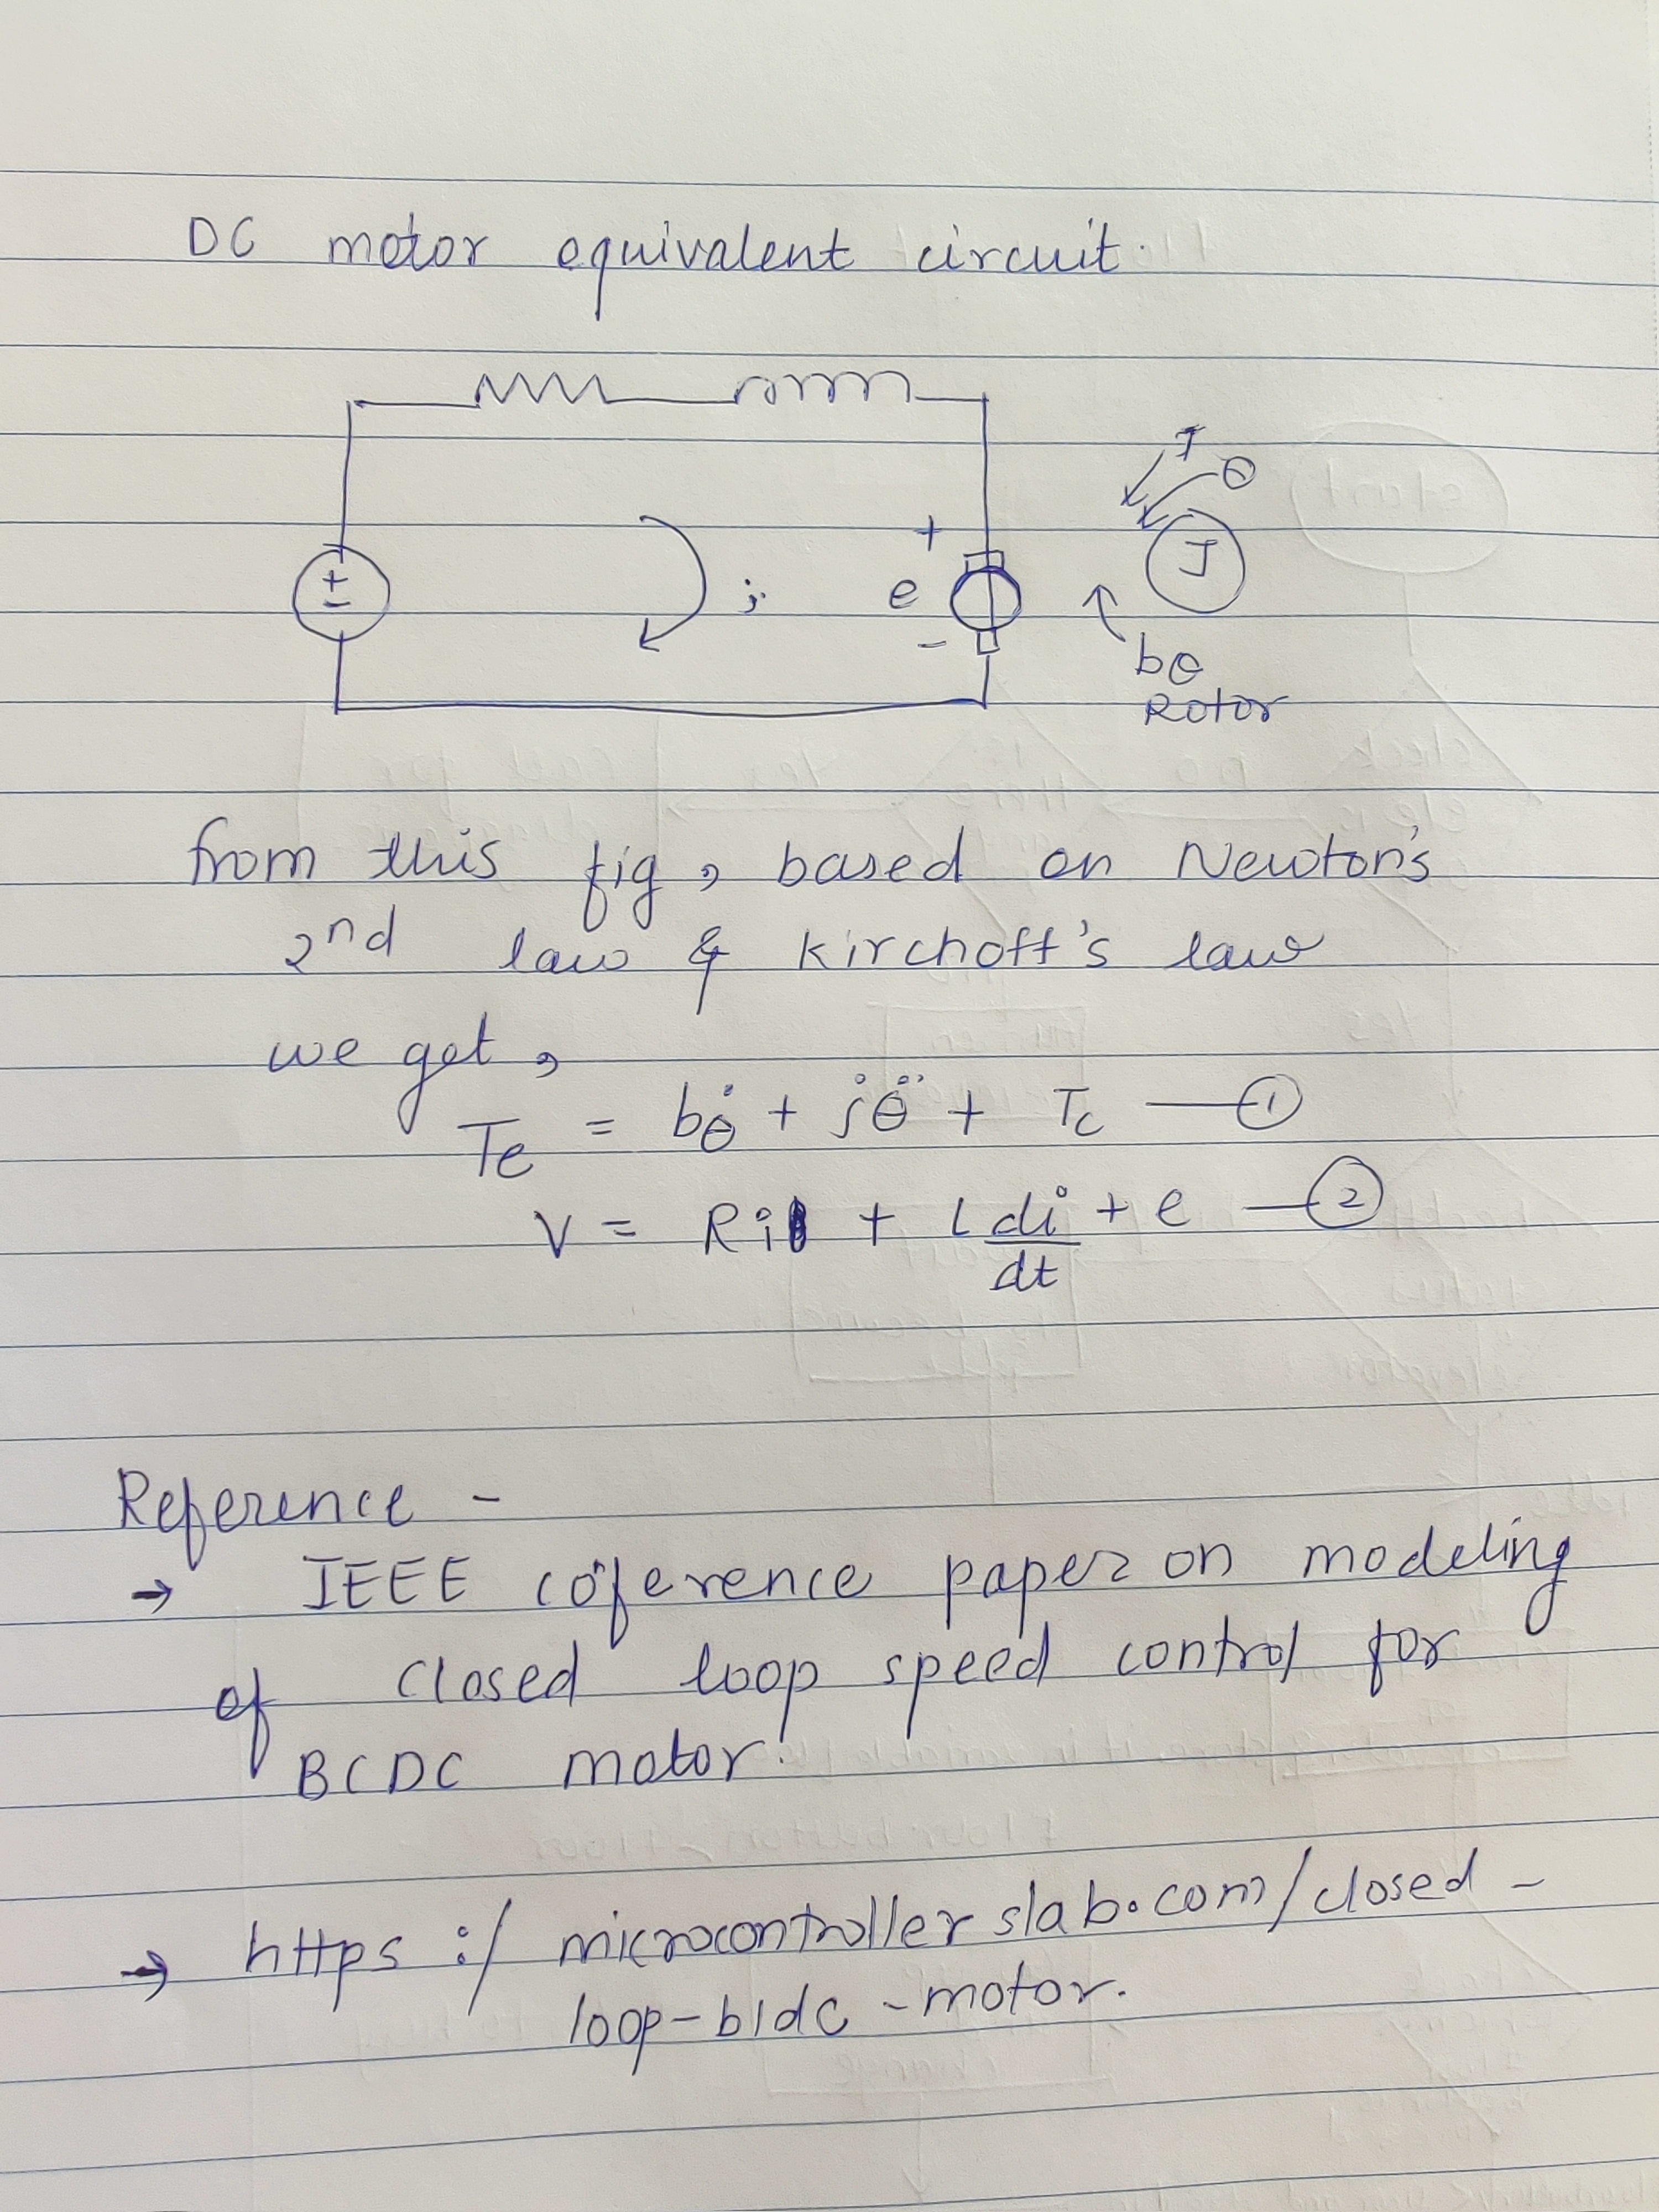 DC motor equivalent circuit.
T
θ
+
J
±
i
e
-
bθ
Rotor
from this fig, based on Newton's
2nd law & Kirchoff's law
we get,
Te = bθ̇ + j̇θ̈ + Tc — ①
V = Ri + L di/dt + e — ②
Reference -
→ IEEE coference paper on modeling
of closed loop speed control for
BCDC motor.
→ https :/ microcontrollerslab.com/closed -
loop-bldc -motor.